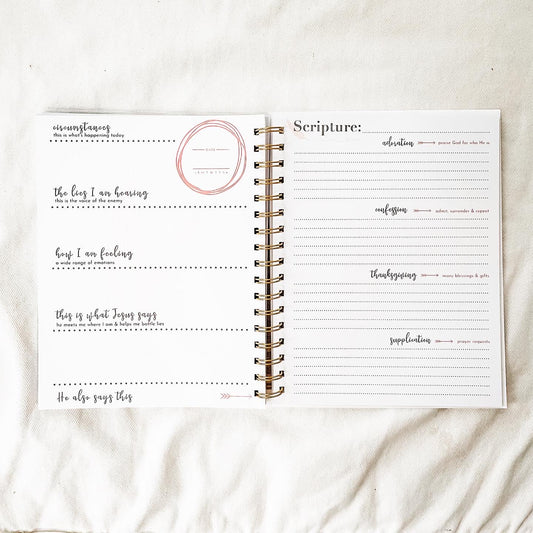 circumstances
this is what's happening today
DATE
the lies I am hearing
this is the voice of the enemy
how I am feeling
a wide range of emotions
this is what Jesus says
he meets me where I am & helps me battle lies
He also says this
Scripture:
adoration
praise God for who He is
confession
admit, surrender & repent
thanksgiving
many blessings & gifts
supplication
prayer requests